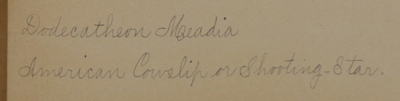 Dodecatheon Meadia
American Cowslip or Shooting-Star.